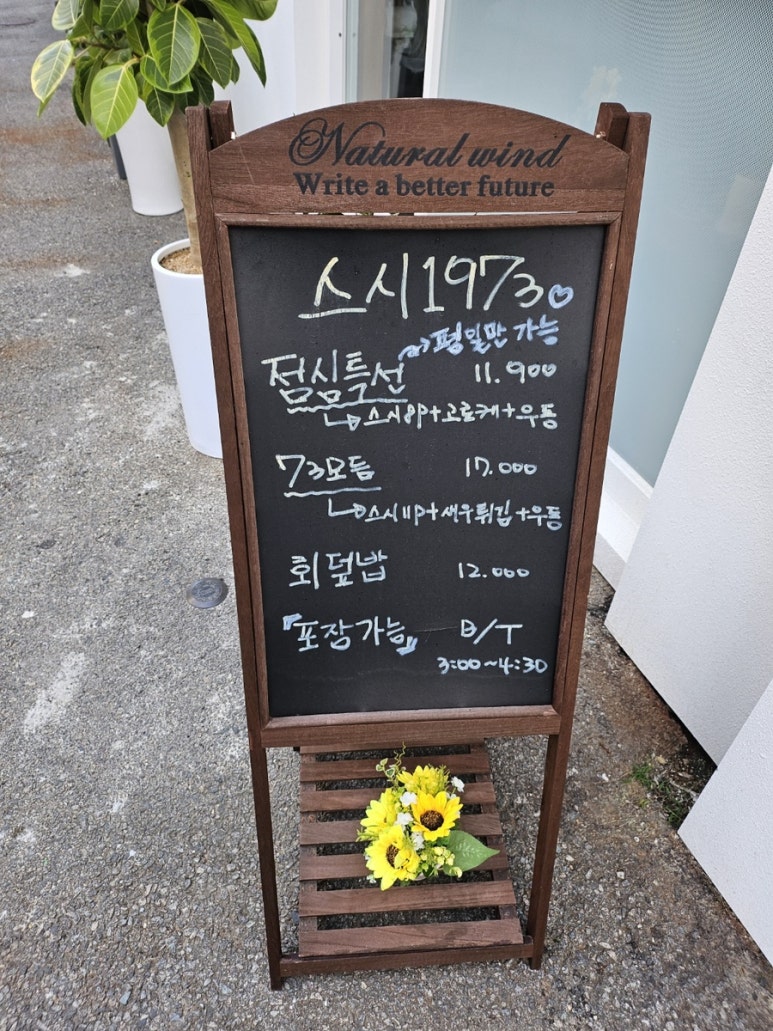 Natural wind
Write a better future
스시1973♡
→평일만 가능
점심특선 11.900
↳스시8p+고로케+우동
73모듬 17.000
↳스시11p+새우튀김+우동
회덮밥 12.000
『포장가능』 B/T
3:00~4:30